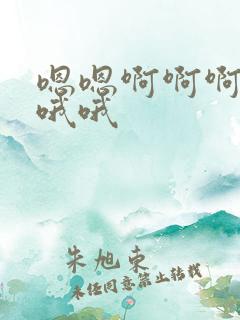 嗯嗯啊啊啊
哦哦
朱旭东
未经同意禁止转载